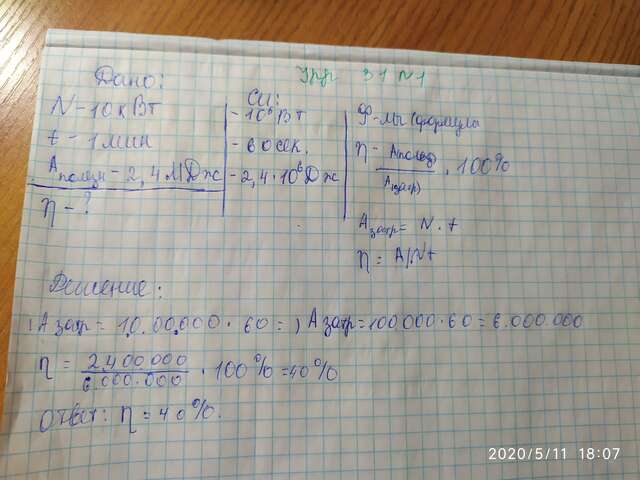 Упр 31 №1
Дано:
N - 10 кВт
t - 1 мин
Aполезн - 2,4 МДж
η - ?
СИ:
- 10⁶ Вт
- 60 сек.
- 2,4 · 10⁶ Дж
Ф-лы (формулы
η - Aполезн / Aзатр) · 100%
Aзатр = N · t
η = A/Nt
Решение:
Aзатр = 10.00.000 · 60 = ) Aзатр = 100 000 · 60 = 6.000.000
η = 2.400 000 / 6.000.000 · 100% = 40%
Ответ: η = 40%.
2020/5/11 18:07